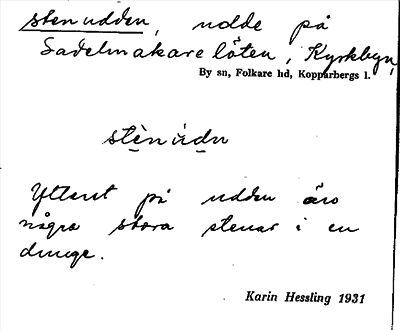 stenudden, udde på
Sadelmakarelöten, Kyrkbyn,
By sn, Folkare hd, Kopparbergs l.
stènúdn
Ytterst på udden äro
några stora stenar i en
druge.
Karin Hessling 1931